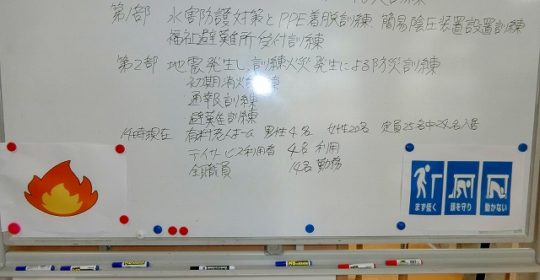 第1部 水害防護対策とPPE着脱訓練 簡易陰圧装置設置訓練
福祉避難所受付訓練
第2部 地震発生し、訓練火災発生による防災訓練
初期消火訓練
通報訓練
避難訓練
14時現在 有料老人ホーム 男性4名 女性20名 定員25名中24名入居
デイサービス利用者 4名利用
全職員 14名勤務
まず低く
頭を守り
動かない